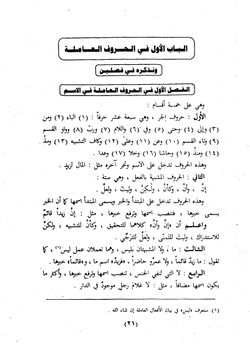 الباب الأول في الحروف العاملة
ونذكره في فصلين
الفصل الأول في الحروف العاملة في الاسم
وهي على خمسة أقسام :
الأول : حروف الجر ، وهي سبعة عشر حرفاً : (١) الباء (٢) ومن
(٣) وإلى (٤) وحتى (٥) وفي (٦) واللام (٧) ورب (٨) وواو القسم
(٩) وتاء القسم (١٠) وعن (١١) وعلى (١٢) وكاف التشبيه (١٣) ومذ
(١٤) ومنذ (١٥) وحاشا (١٦) وخلا (١٧) وعدا .
وهذه الحروف تدخل على الاسم وتجر آخره مثل : المال لزيد .
الثاني : الحروف المشبهة بالفعل ، وهي ستة :
إنَّ ، وأنَّ ، وكأنَّ ، ولكنَّ ، وليتَ ، ولعلَّ .
وهذه الحروف تدخل على المبتدأ والخبر ويسمى المبتدأ اسمها كما أن الخبر
يسمى خبرها ، فتنصب اسمها وترفع خبرها ، مثل : إنَّ زيداً قائمٌ
واعـلـم أن «إنَّ وأنَّ» كلاهما للتحقيق ، وكأنَّ للتشبيه ، ولكنَّ
للاستدراك ، وليت للتمني ، ولعلَّ للترجِّي .
الثالـث : ما ، ولا المشبهتان بليس ، وهما تعملان عمل ليس(١) ، كما
تقول : ما زيدٌ قائماً ، ولا عمروٌ حاضراً . «فزيد» اسم ما ، و«قائماً» خبرها .
الرابـع : لا التي لنفي الجنس ، تنصب اسمها وترفع خبرها ، وأكثر ما
يكون اسمها مضافاً ، مثل : لا غلامَ رجلٍ موجودٌ في الدار .
(١) ستعرف «ليس» في بيان الأفعال العاملة إن شاء الله .
(٢٦)